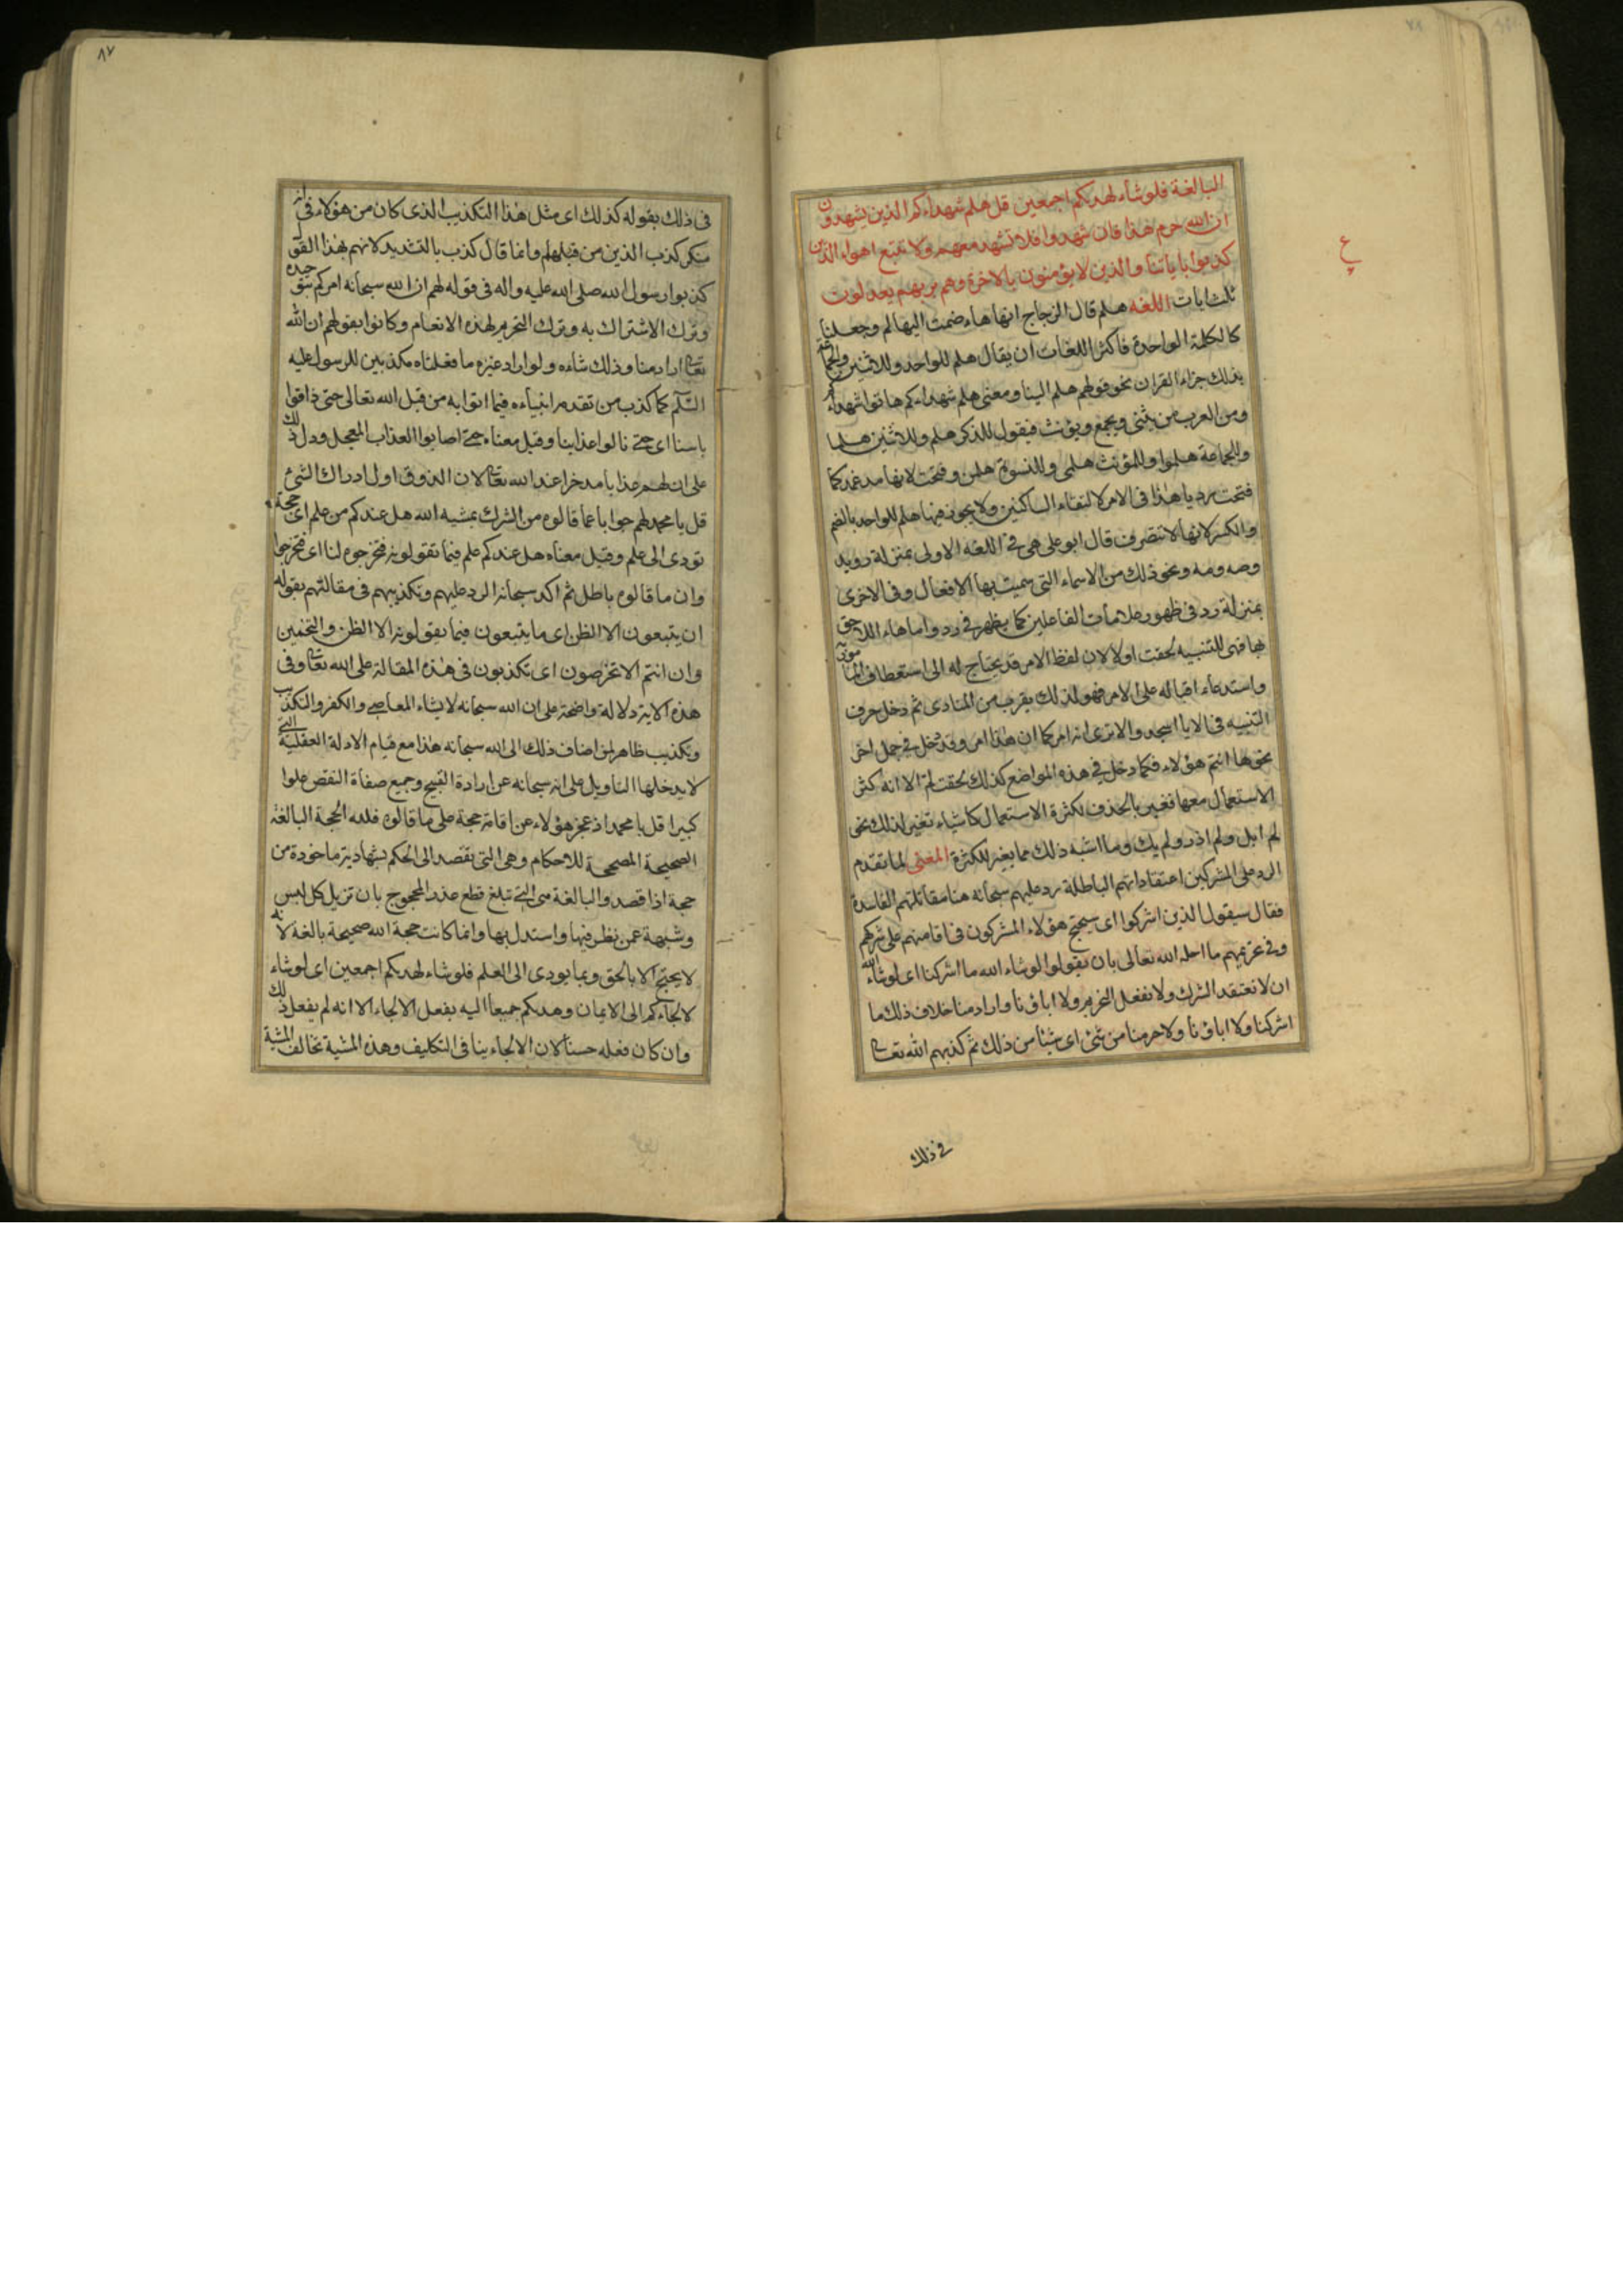 البالغة فلوشاء لهدىكم اجمعين قل هلم شهداءكم الذين يشهدون
ان الله حرم هذا فان شهدوا فلا تشهد معهم ولا تتبع اهواء الذين
كذبوا باياتنا والذين لا يؤمنون بالاخرة وهم بربهم يعدلون
ثلث ايات اللغه هلم قال الزجاج انها هاء ضمت اليها لم وجعلتا
كالكلمة الواحدة فاكثر اللغات ان يقال هلم للواحد وللاثنين والجماعة
بذلك جاء القران نحو قولهم هلم الينا ومعنى هلم شهداءكم هاتوا شهداءكم
ومن العرب من يثنى ويجمع ويؤنث فيقول للذكر هلم وللاثنين هلما
وللجماعة هلموا وللمؤنث هلمى وللنسوة هلمن وفتحت لانها مدغمة كما
فتحت رد يا هذا فى الامر لالتقاء الساكنين ولا يجوز فيها هلم للواحد بالضم
والكسر لانها لا تتصرف قال ابو على هى فى اللغة الاولى بمنزلة رويد
وصه ومه ونحو ذلك من الاسماء التى سميت بها الافعال وفى الاخرى
بمنزلة رد فى ظهور علامات الفاعلين كما يظهر فى رد واما هاء اللاحق
بها فهى للتنبيه لحقت اولا لان لفظ الامر قد يحتاج له الى استعطاف المامور
واستدعاء اقباله على الامر فهو لذلك يقرب من المنادى ثم دخل حرف
التنبيه فى الا يا اسجدوا الا ترى انه امر كما ان هذا امر وقد دخل فى جمل اخر
نحو ها انتم هؤلاء فكما دخل فى هذه المواضع كذلك لحقت لم الا انه كثر
الاستعمال معها فغير بالحذف لكثرة الاستعمال كاشياء تغير لذلك نحو
لم ابل ولم ادر ولم يك وما اشبه ذلك مما يغير للكثرة المعنى لما تقدم
الرد على المشركين اعتقاداتهم الباطلة رد عليهم سبحانه هنا مقالتهم الفاسدة
فقال سيقول الذين اشركوا اى سيحتج هؤلاء المشركون فى اقامتهم على شركهم
وفى تحريمهم ما احله الله تعالى بان يقولوا لوشاء الله ما اشركنا اى لوشاء الله
ان لا نعتقد الشرك ولا نفعل التحريم ولا اباؤنا واراد منا خلاف ذلك ما
اشركنا ولا اباؤنا ولا حرمنا من شئ اى شيئا من ذلك ثم كذبهم الله تعالى
فى ذلك
٨٧
فى ذلك بقوله كذلك اى مثل هذا التكذيب الذى كان من هؤلاء فى انه
منكر كذب الذين من قبلهم وانما قال كذب بالتشديد لانهم بهذا القول
كذبوا رسول الله صلى الله عليه واله فى قوله لهم ان الله سبحانه امركم بتوحيده
وترك الاشتراك به وترك التحريم لهذه الانعام وكانوا بقولهم ان الله
تعالى اراد منا وذلك شاءه ولو اراد غيره ما فعلناه مكذبين للرسول عليه
السلم كما كذب من تقدم انبياءه فيما اتوا به من قبل الله تعالى حتى ذاقوا
باسنا اى حتى نالوا عذابنا وقيل معناه حتى اصابوا العذاب المعجل ودل ذلك
على ان لهم عذابا مدخرا عند الله تعالى لان الذوق اول ادراك الشئ
قل يا محمد لهم جوابا عما قالوه من الشرك بمشية الله هل عندكم من علم اى حجة
تودى الى علم وقيل معناه هل عندكم علم فيما تقولونه فتخرجوه لنا اى فتخرجوا
وان ما قالوه باطل ثم اكد سبحانه الرد عليهم وتكذيبهم فى مقالتهم بقوله
ان يتبعون الا الظن اى ما يتبعون فيما يقولونه الا الظن والتخمين
وان انتم الا تخرصون اى تكذبون فى هذه المقالة على الله تعالى وفى
هذه الاية دلالة واضحة على ان الله سبحانه لا يشاء المعاصى والكفر والتكذيب
وتكذيب ظاهر لمن اضاف ذلك الى الله سبحانه هذا مع قيام الادلة العقلية التى
لا يدخلها التاويل على انه سبحانه عن ارادة القبيح وجميع صفاة النقص علوا
كبيرا قل يا محمد اذ عجز هؤلاء عن اقامة حجة على ما قالوه فلله الحجة البالغة
الصحيحة المصححة للاحكام وهى التى تقصد الى الحكم بشهادته ماخوذة من
حجة اذا قصد والبالغة هى التى تبلغ قطع عذر المحجوج بان تزيل كل لبس
وشبهة عمن نظر فيها واستدل بها وانما كانت حجة الله صحيحة بالغة لانه
لا يحتج الا بالحق وبما يودى الى العلم فلوشاء لهدىكم اجمعين اى لوشاء
لالجاءكم الى الايمان وهدىكم جميعا اليه بفعل الالجاء الا انه لم يفعل ذلك
وان كان فعله حسنا لان الالجاء ينافى التكليف وهذه المشية تخالف المشية